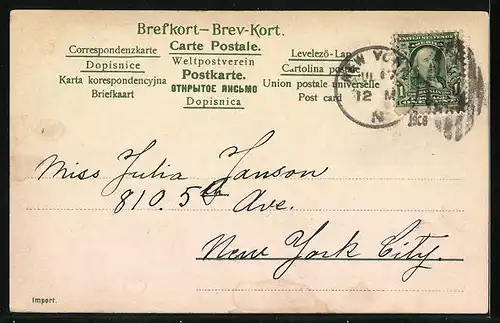 Brefkort–Brev-Kort.
Correspondenzkarte Carte Postale. Levelező-Lap
Dopisnice Weltpostverein Cartolina postale
Karta korespondencyjna Postkarte. Union postale universelle
Briefkaart ОТКРЫТОЕ ПИСЬМО Post card
Dopisnica
NEW YORK
12 M
N
1908
UNITED STATES OF AMERICA
1 1
Miss Julia Janson
810. 5th Ave.
New York City.
Import.